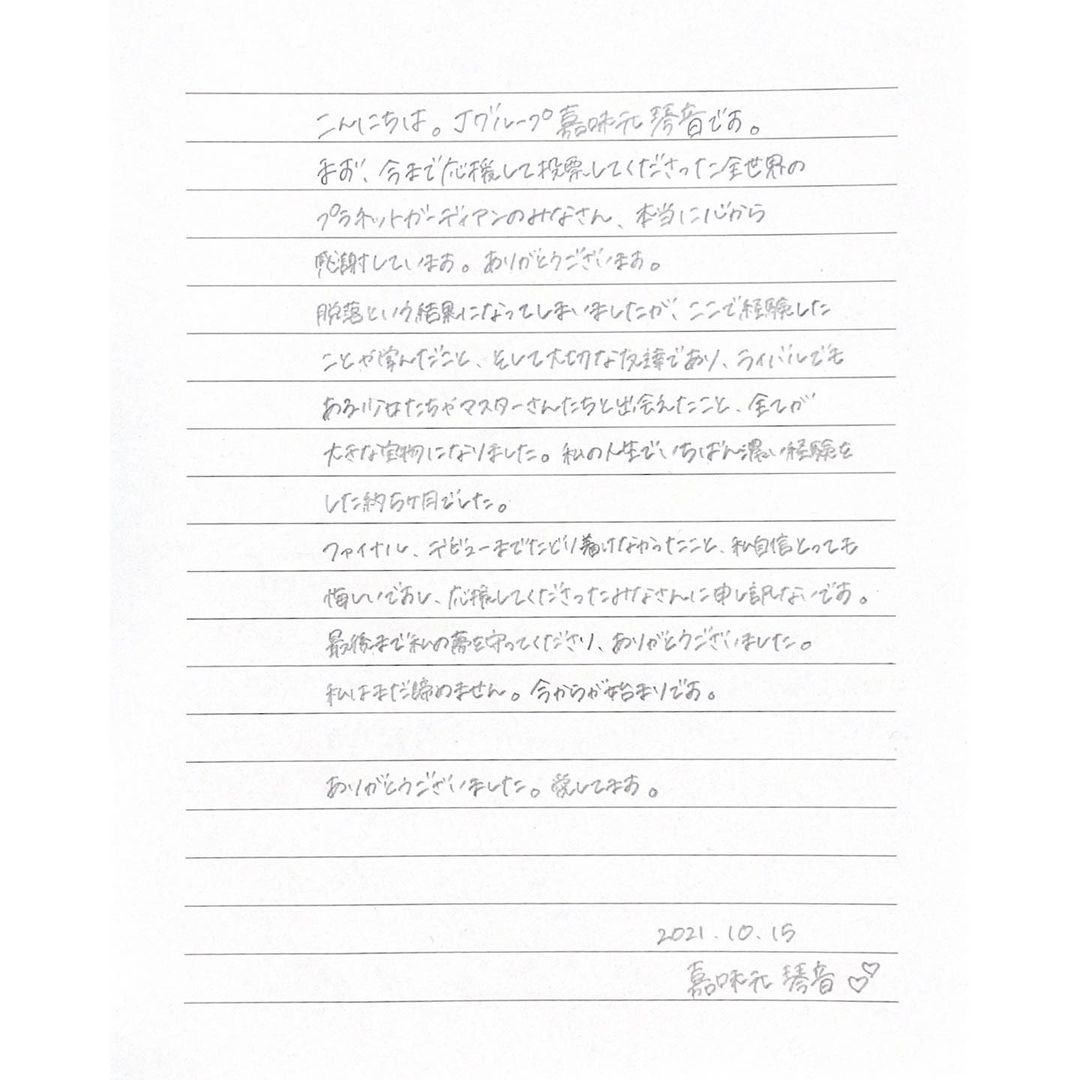 こんにちは。Jグループ嘉味元琴音です。
まず、今まで応援して投票してくださった全世界の
プラネットガーディアンのみなさん、本当に心から
感謝しています。ありがとうございます。
脱落という結果になってしまいましたが、ここで経験した
ことや学んだこと、そして大切な友達であり、ライバルでも
ある少女たちやマスターさんたちと出会えたこと、全てが
大きな宝物になりました。私の人生でいちばん濃い経験を
した約5ヶ月でした。
ファイナル、デビューまでたどり着けなかったこと、私自信とっても
悔しいですし、応援してくださったみなさんに申し訳ないです。
最後まで私の夢を守ってくださり、ありがとうございました。
私はまだ諦めません。今からが始まりです。
ありがとうございました。愛してます。
2021.10.15
嘉味元 琴音♡♡